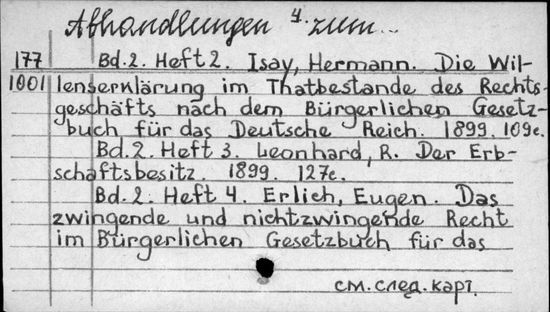 Abhandlungen 4. zum...
177 Bd.2. Heft 2. Isay, Hermann. Die Wil-
1001 lenserklärung im Thatbestande des Rechts-
geschäfts nach dem Bürgerlichen Gesetz-
buch für das Deutsche Reich. 1899. 109c.
Bd.2. Heft 3. Leonhard, R. Der Erb-
schaftsbesitz. 1899. 127c.
Bd.2. Heft 4. Erlich, Eugen. Das
zwingende und nichtzwingende Recht
im Bürgerlichen Gesetzbuch für das
см. след. карт.